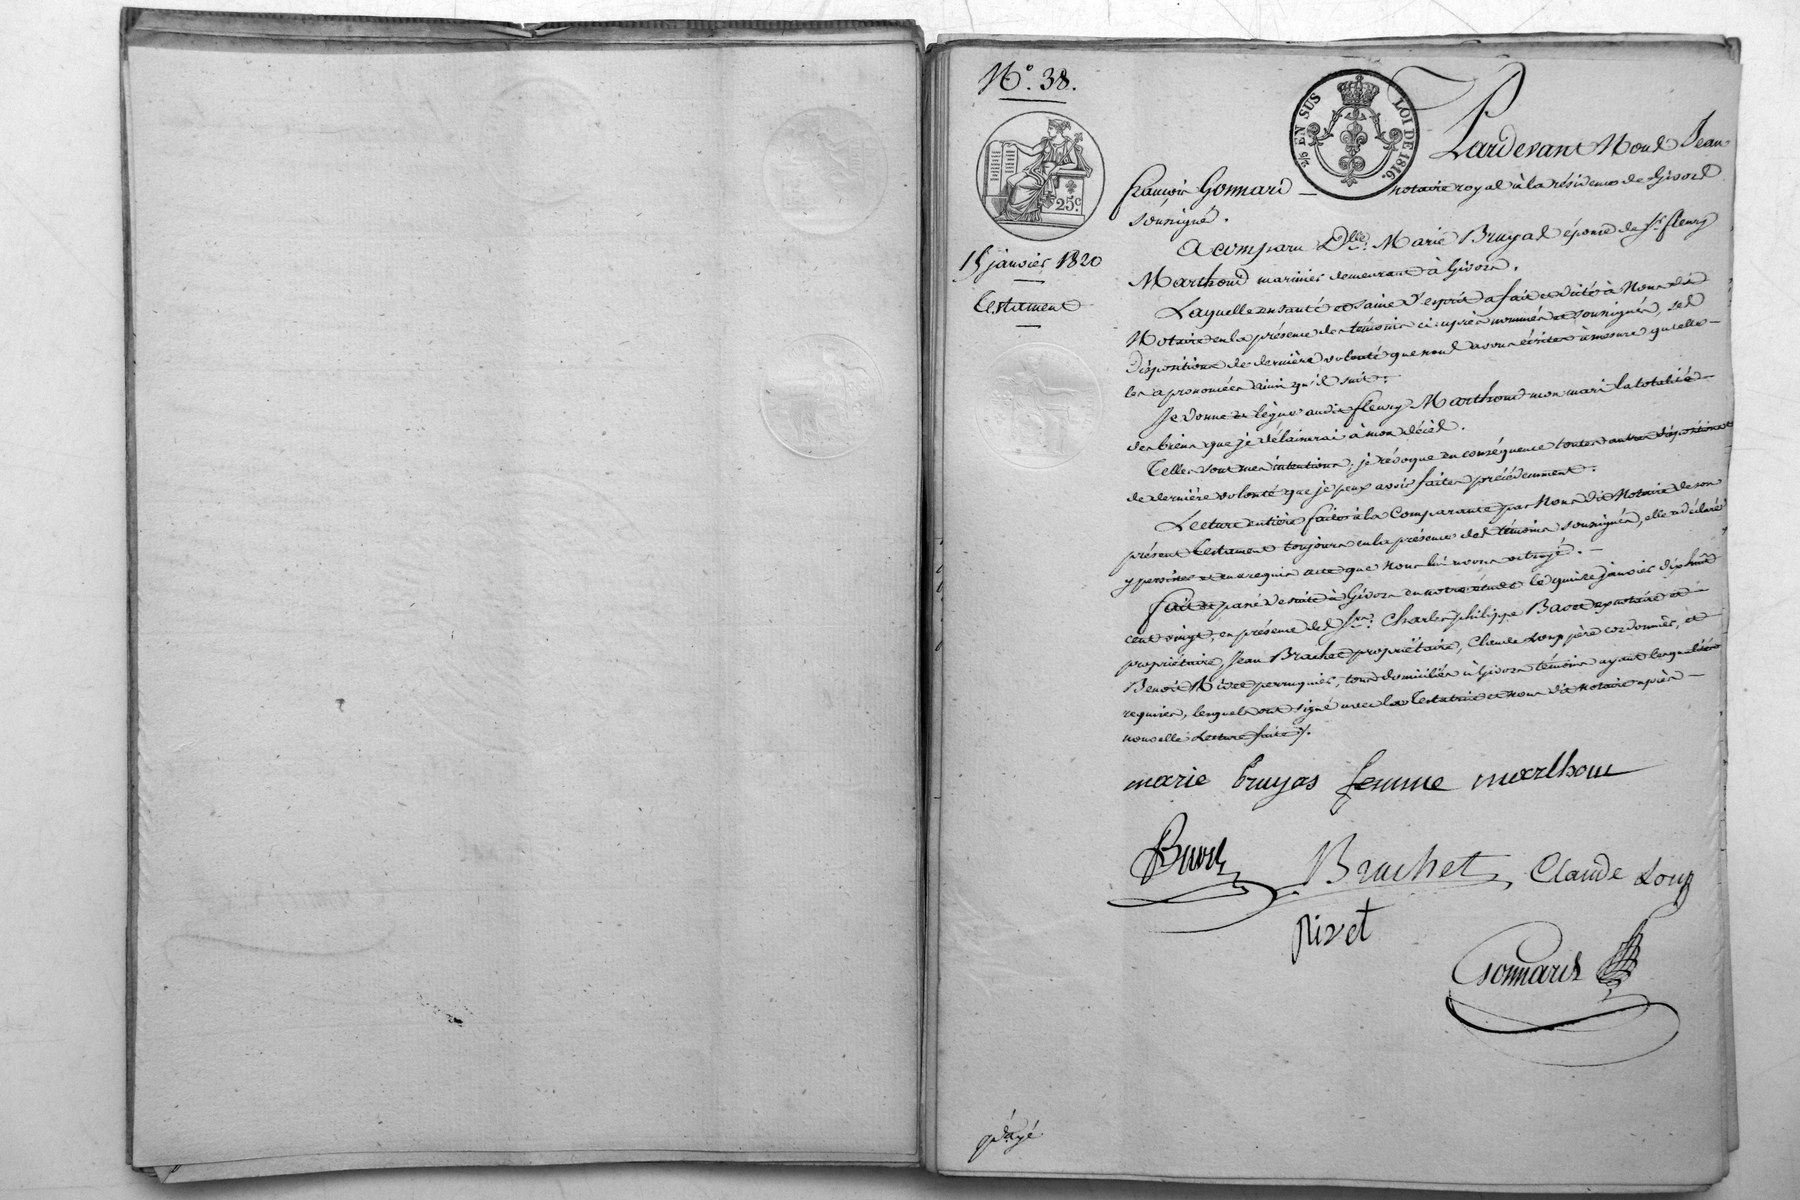 N.° 38.
2/5 EN SUS LOI DE 1816.
25c
15 janvier 1820
Testament
Pardevant Nous Jean
françois Gonnard — notaire royal à la résidence de Givors
soussigné.
A comparu Dlle. Marie Bruyas épouse de Sr. fleury
Marthoud marinier demeurant à Givors.
Laquelle en santé et saine d'esprit a fait et dicté à Nous dit
Notaire en la présence des témoins ci-après nommés et soussignés, ses
dispositions de dernière volonté que nous avons écrites à mesure qu'elle —
les a prononcées ainsi qu'il suit:
Je donne et légue audit fleury Marthoud mon mari la totalité
des biens que je délaisserai à mon décès.
Telles sont mes intentions; je révoque en conséquence toutes autres dispositions
de dernière volonté que je peux avoir faites précédemment.
Lecture entière faite à la Comparante par Nous dit Notaire de son
présent testament toujours en la présence des témoins soussignés, elle a déclaré
y persister et en a requis acte que nous lui avons octroyé. —
fait et passé de suite à Givors en notre étude le quinze janvier dix huit
cent vingt, en présence des Srs. Charles philippe exnotaire et —
propriétaire, Jean Brachet propriétaire, Claude Loup père cordonnier, et
Benoit Rivet perruquier, tous domiciliés à Givors témoins ayant les qualités
requises, lesquels ont signé avec la Testatrice et nous dit notaire après —
nouvelle Lecture faite.
marie bruyas femme marthoud
Brachet Claude Loup
Rivet
Gonnard
payé